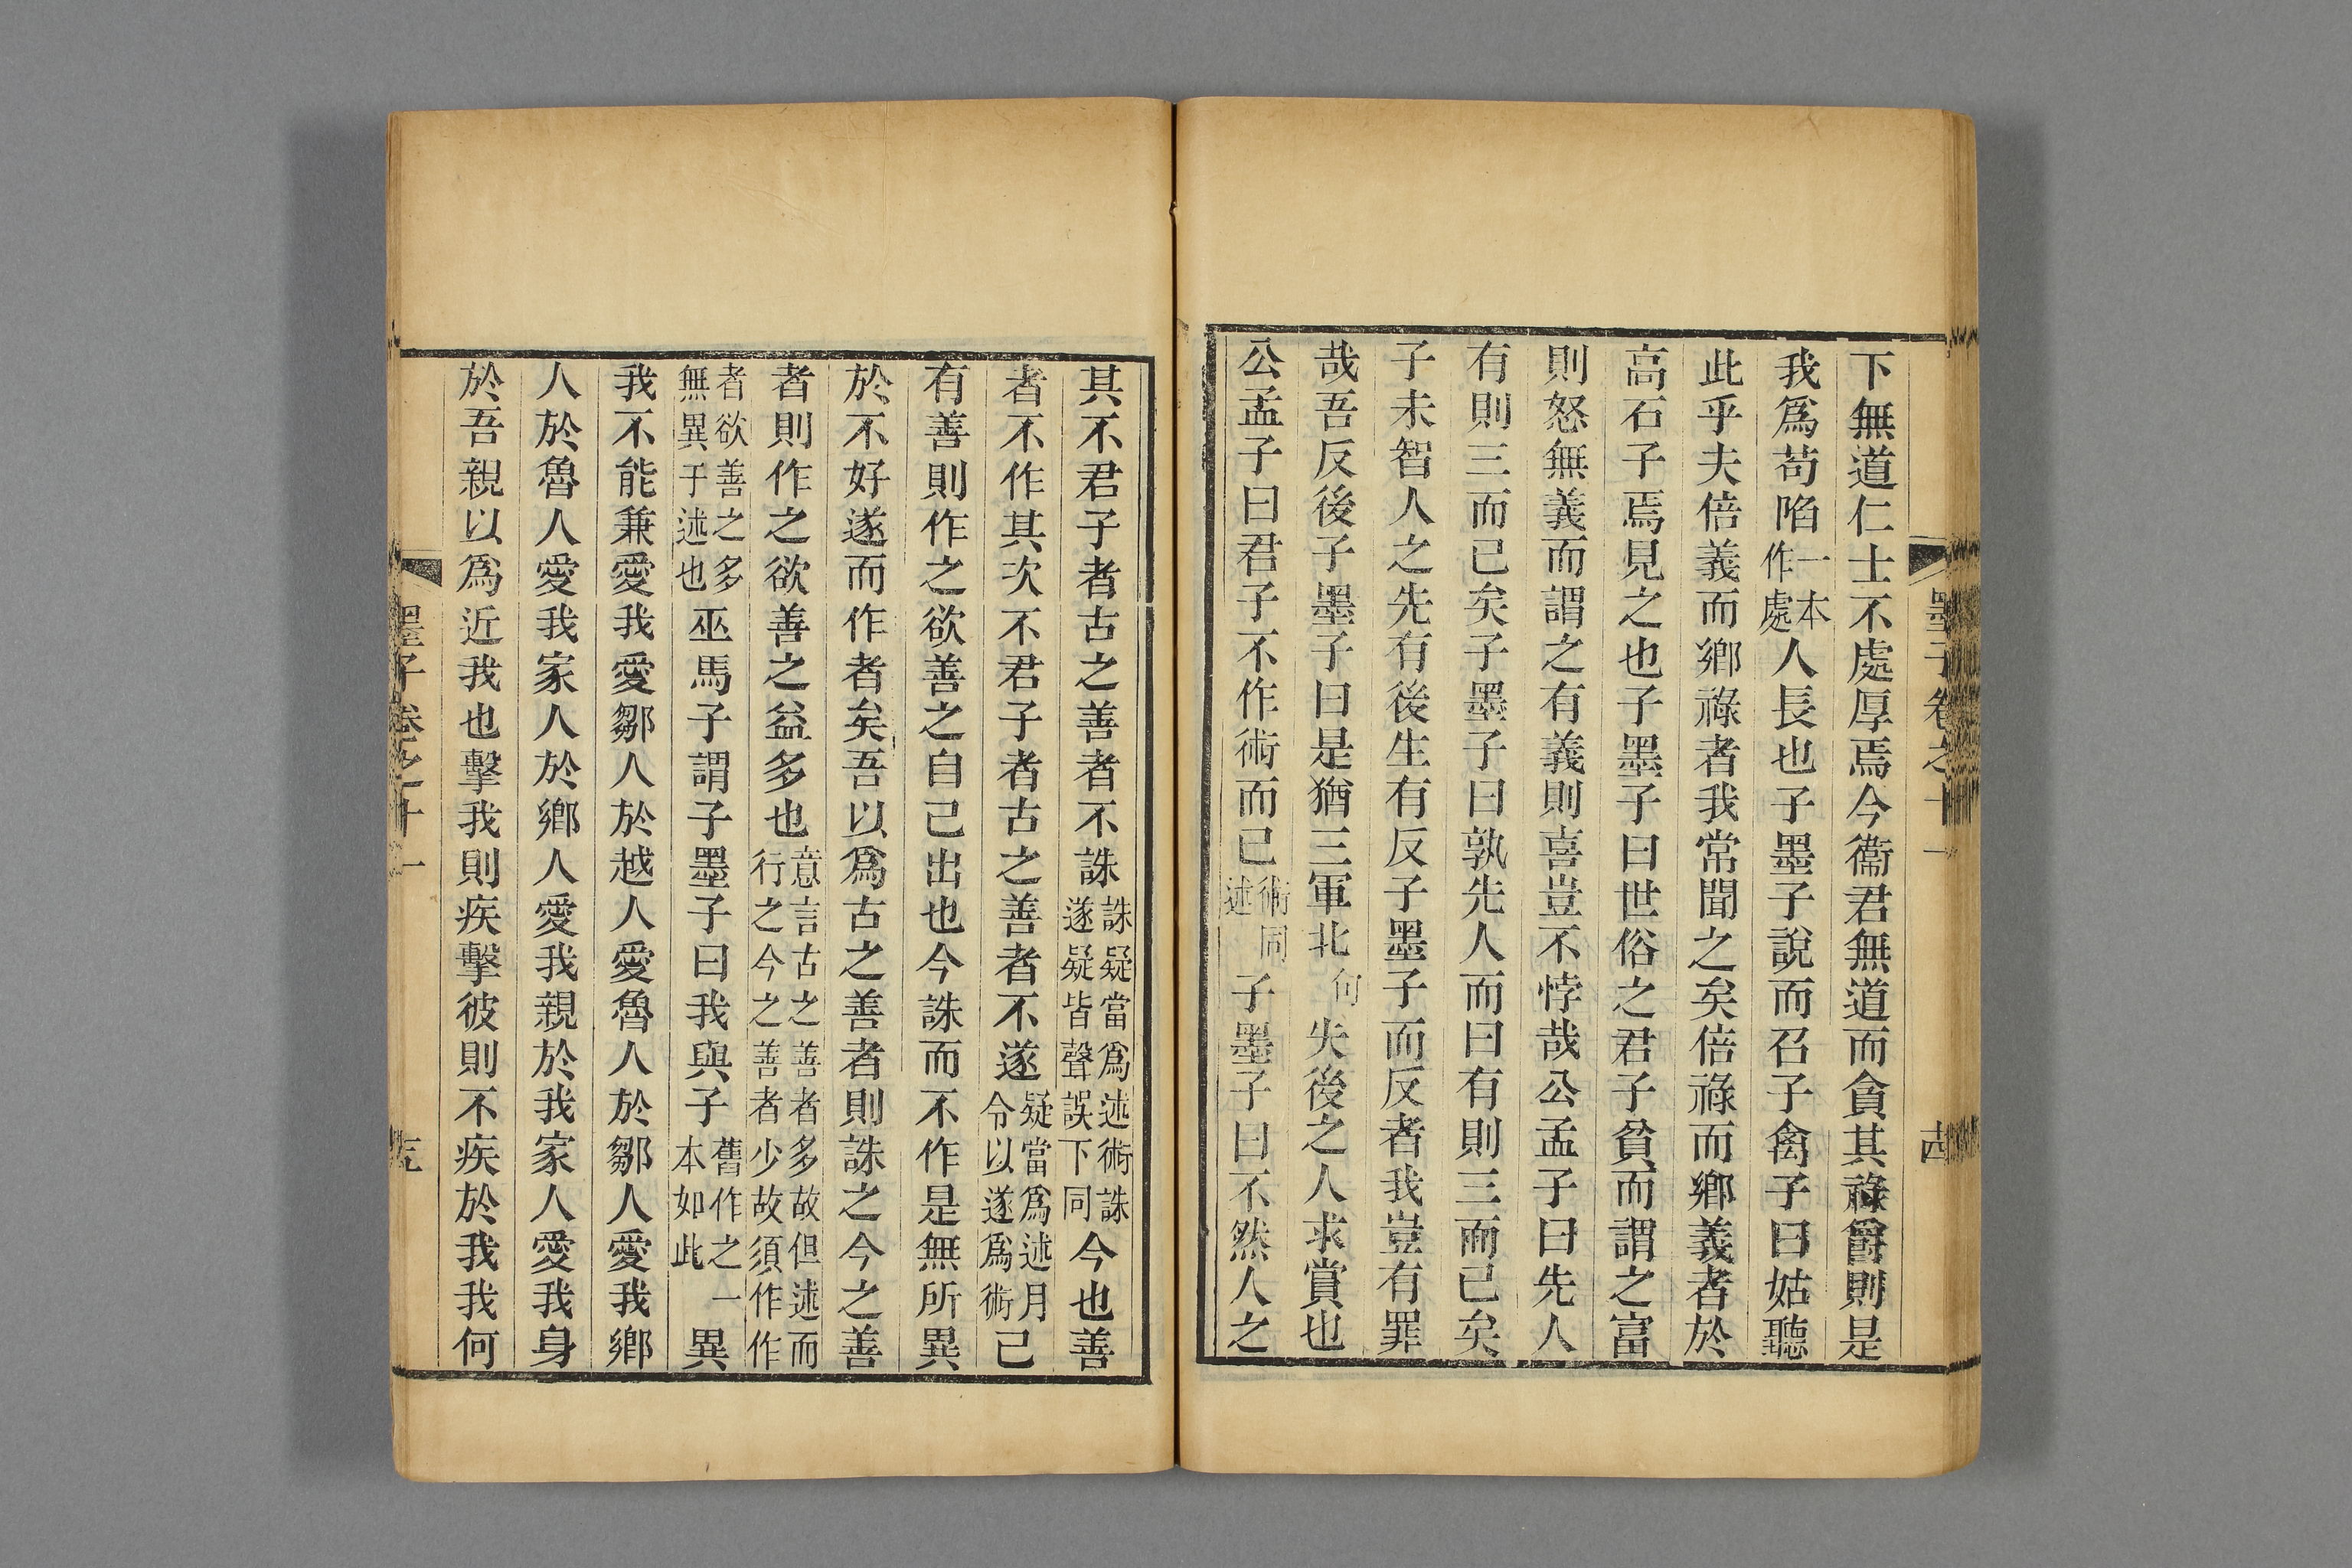 墨子卷之十一
下無道仁士不處厚焉今衞君無道而貪其祿爵則是
我爲苟陷一本作處人長也子墨子說而召子禽子曰姑聽
此乎夫倍義而鄉祿者我常聞之矣倍祿而鄉義者於
高石子焉見之也子墨子曰世俗之君子貧而謂之富
則怒無義而謂之有義則喜豈不悖哉公孟子曰先人
有則三而已矣子墨子曰孰先人而曰有則三而已矣
子未智人之先有後生有反子墨子而反者我豈有罪
哉吾反後子墨子曰是猶三軍北何失後之人求賞也
公孟子曰君子不作術而已術同述子墨子曰不然人之
其不君子者古之善者不誅誅疑當爲述術誅遂疑皆聲誤下同今也善
者不作其次不君子者古之善者不遂疑當爲述月令以遂爲術己
有善則作之欲善之自己出也今誅而不作是無所異
於不好遂而作者矣吾以爲古之善者則誅之今之善
者則作之欲善之益多也意言古之善者多故但述而行之今之善者少故須作作
者欲善之多無異于述也巫馬子謂子墨子曰我與子舊作之一本如此異
我不能兼愛我愛鄒人於越人愛魯人於鄒人愛我鄉
人於魯人愛我家人於鄉人愛我親於我家人愛我身
於吾親以爲近我也擊我則疾擊彼則不疾於我我何
墨子卷之十一